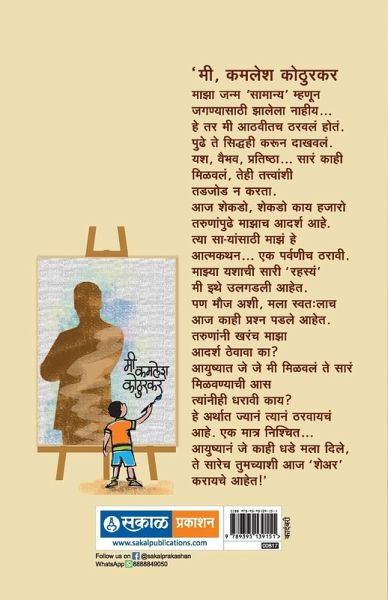 ‘मी, कमलेश कोठुरकर
माझा जन्म ‘सामान्य’ म्हणून
जगण्यासाठी झालेला नाहीय...
हे तर मी आठवीतच ठरवलं होतं.
पुढे ते सिद्धही करून दाखवलं.
यश, वैभव, प्रतिष्ठा... सारं काही
मिळवलं, तेही तत्त्वांशी
तडजोड न करता.
आज शेकडो, शेकडो काय हजारो
तरुणांपुढे माझाच आदर्श आहे.
त्या साऱ्यांसाठी माझं हे
आत्मकथन... एक पर्वणीच ठरावी.
माझ्या यशाची सारी ‘रहस्यं’
मी इथे उलगडली आहेत.
पण मौज अशी, मला स्वतःलाच
आज काही प्रश्न पडले आहेत.
तरुणांनी खरंच माझा
आदर्श ठेवावा का?
आयुष्यात जे जे मी मिळवलं ते सारं
मिळवण्याची आस
त्यांनीही धरावी काय?
हे अर्थात ज्यानं त्यानं ठरवायचं
आहे. एक मात्र निश्चित...
आयुष्यानं जे काही धडे मला दिले,
ते सारेच तुमच्याशी आज ‘शेअर’
करायचे आहेत!’
मी
कमलेश
कोठुरकर
सकाळ प्रकाशन
www.sakalpublications.com
Follow us on @sakalprakashan
WhatsApp 8888849050
ISBN 978-93-95139-15-1
9 789395 139151
00817
कादंबरी